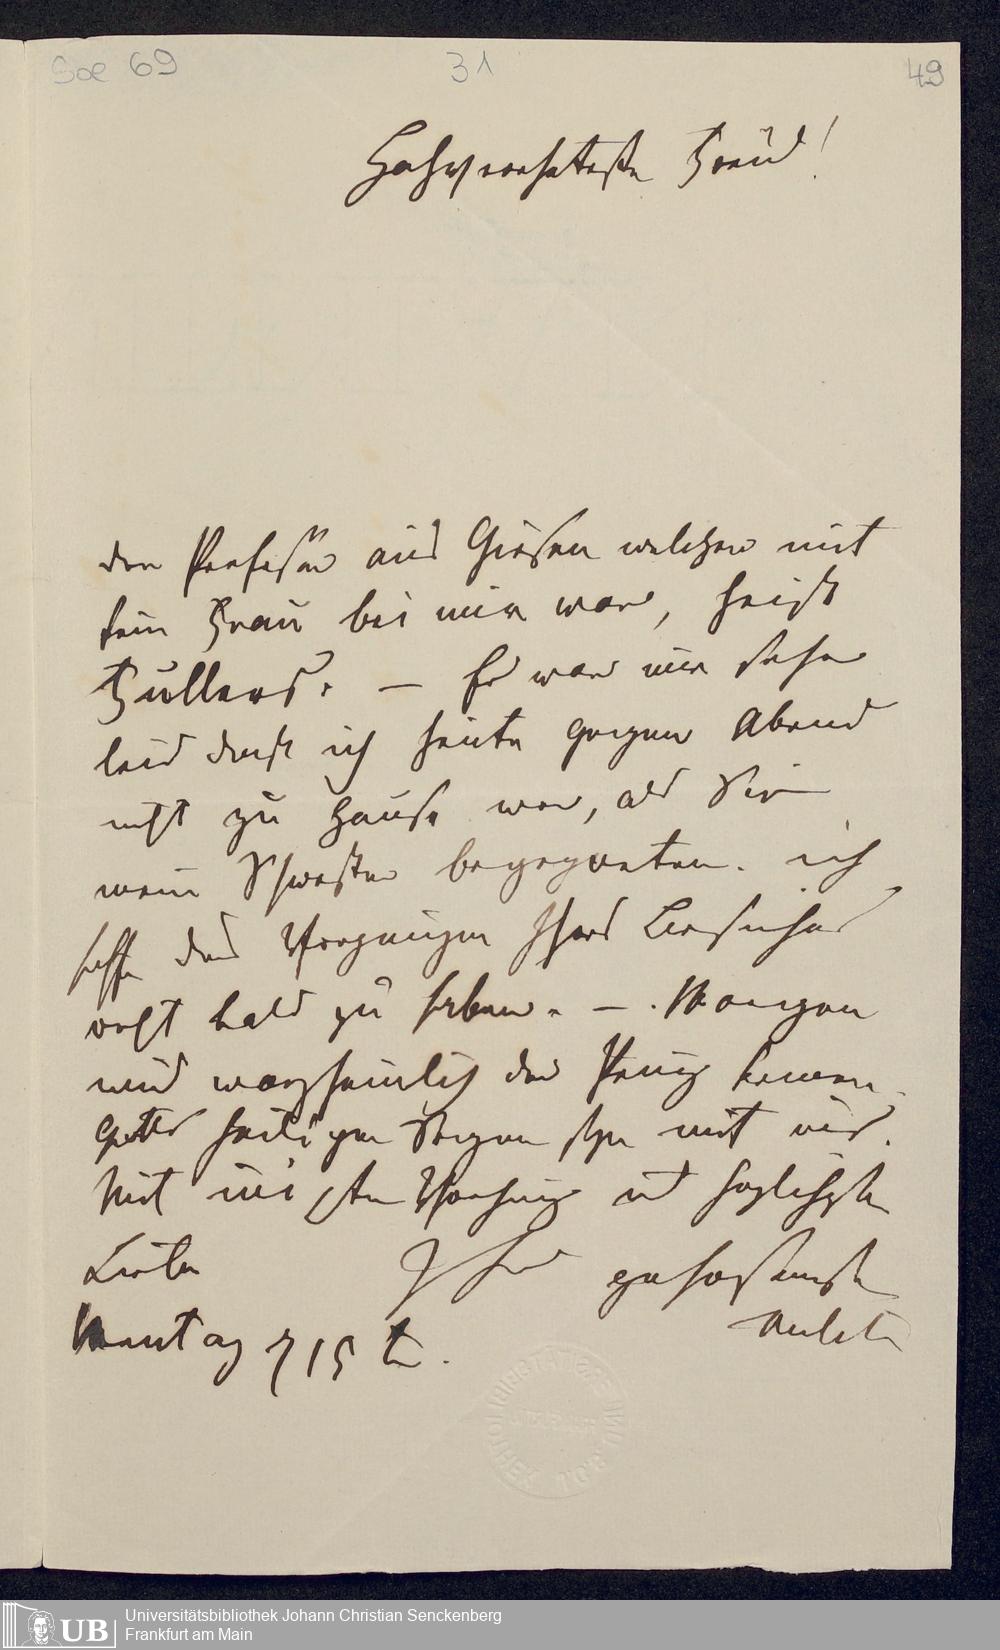 Soe 69 31 49
Hochverehrteste Freud!
der Profeßer aus Giesen welcher mit
sein Frau bei mir war, heißt
Zullers. — Es war mir sehr
leid daß ich heute gegen Abend
nicht zu Hause war, als Sie
mein Schwester begegneten. ich
hoffe das Vergnügen Ihres Besuches
recht bald zu haben. — Morgen
wird warscheinlich der Prinz kommen
Gottes heiliger Segen sey mit uns.
Mit und herzlichster
Liebe Ihre gehorsamste
Montag 15 t.
UB Universitätsbibliothek Johann Christian Senckenberg
Frankfurt am Main